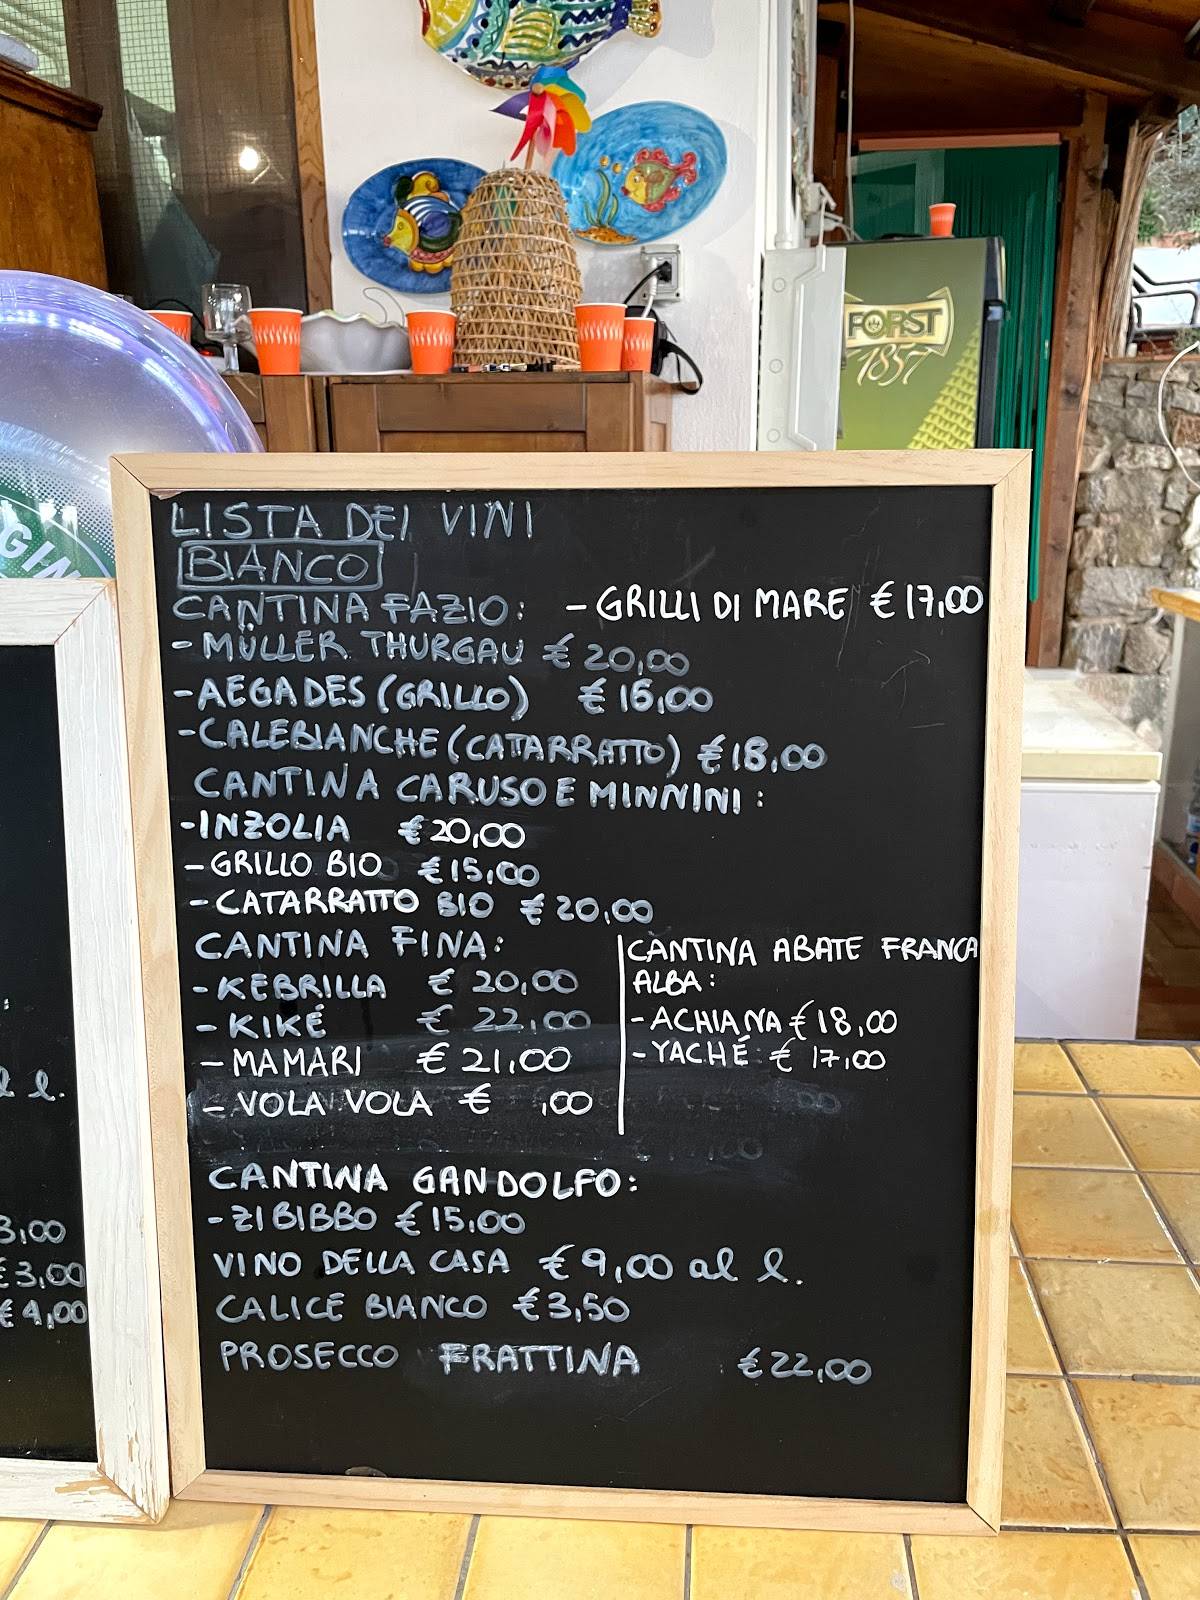 FORST
1857
GIN
LISTA DEI VINI
BIANCO
CANTINA FAZIO: - GRILLI DI MARE € 17,00
- MÜLLER THURGAU € 20,00
- AEGADES (GRILLO) € 16,00
- CALEBIANCHE (CATARRATTO) € 18,00
CANTINA CARUSO E MINNINI:
- INZOLIA € 20,00
- GRILLO BIO € 15,00
- CATARRATTO BIO € 20,00
CANTINA FINA:
- KEBRILLA € 20,00
- KIKÉ € 22,00
- MAMARI € 21,00
- VOLA VOLA € ,00
CANTINA ABATE FRANCA
ALBA:
- ACHIANA € 18,00
- YACHÉ € 17,00
CANTINA GANDOLFO:
- ZIBIBBO € 15,00
VINO DELLA CASA € 9,00 al l.
CALICE BIANCO € 3,50
PROSECCO FRATTINA € 22,00
l.
3,00
€ 3,00
€ 4,00